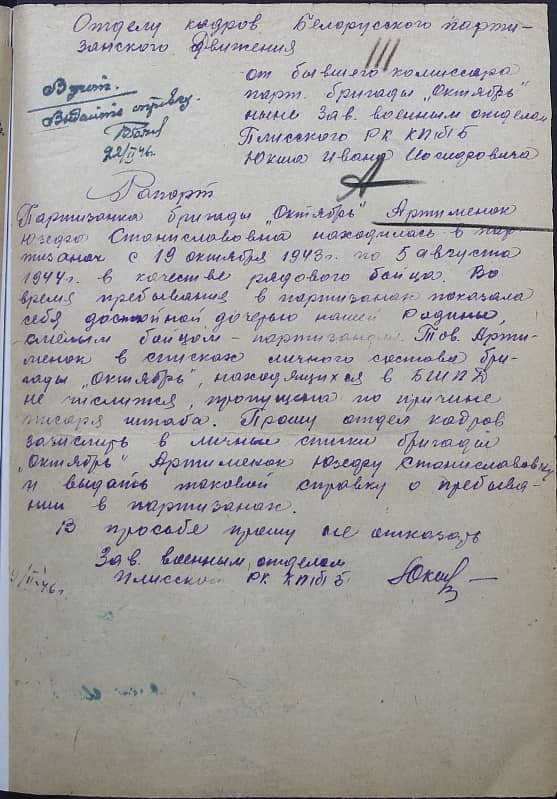 Отделу кадров Белорусского парти-
занского Движения
III
от бывшего комиссара
парт. бригады „Октябрь"
ныне Зав. военным отделом
Плисского РК КП/б/Б
Юкша Ивана Иосифовича
В учет.
Выдать справку.
22/II 46г.
А
Рапорт
Партизанка бригады „Октябрь" Артименок
Юзефа Станиславовна находилась в пар-
тизанах с 19 октября 1943г. по 5 августа
1944г. в качестве рядового бойца. Во
время пребывания в партизанах показала
себя достойной дочерью нашей Родины,
смелым бойцом-партизаном. Тов. Арти-
менок в списках личного состава бри-
гады „Октябрь", находящихся в БШПД
не числится, пропущена по причине
писаря штаба. Прошу отдел кадров
зачислить в личные списки бригады
„Октябрь" Артименок Юзефу Станиславовну
и выдать таковой справку о пребыва-
нии в партизанах.
В просьбе прошу не отказать
Зав. военным отделом
Плисского РК КП/б/Б
/II-46г.